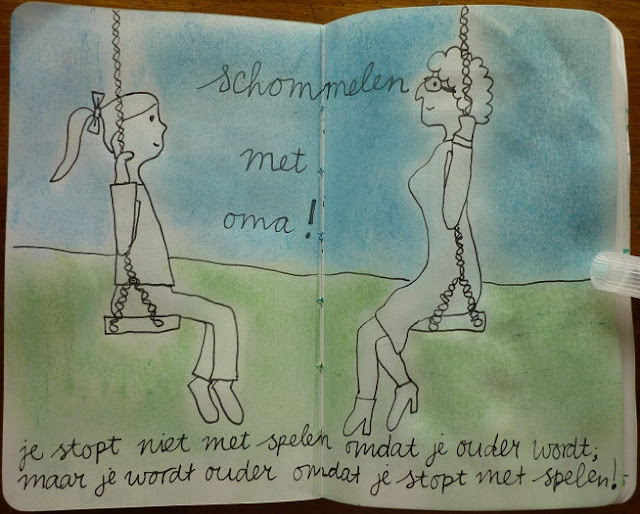 schommelen
met
oma!
je stopt niet met spelen omdat je ouder wordt;
maar je wordt ouder omdat je stopt met spelen!